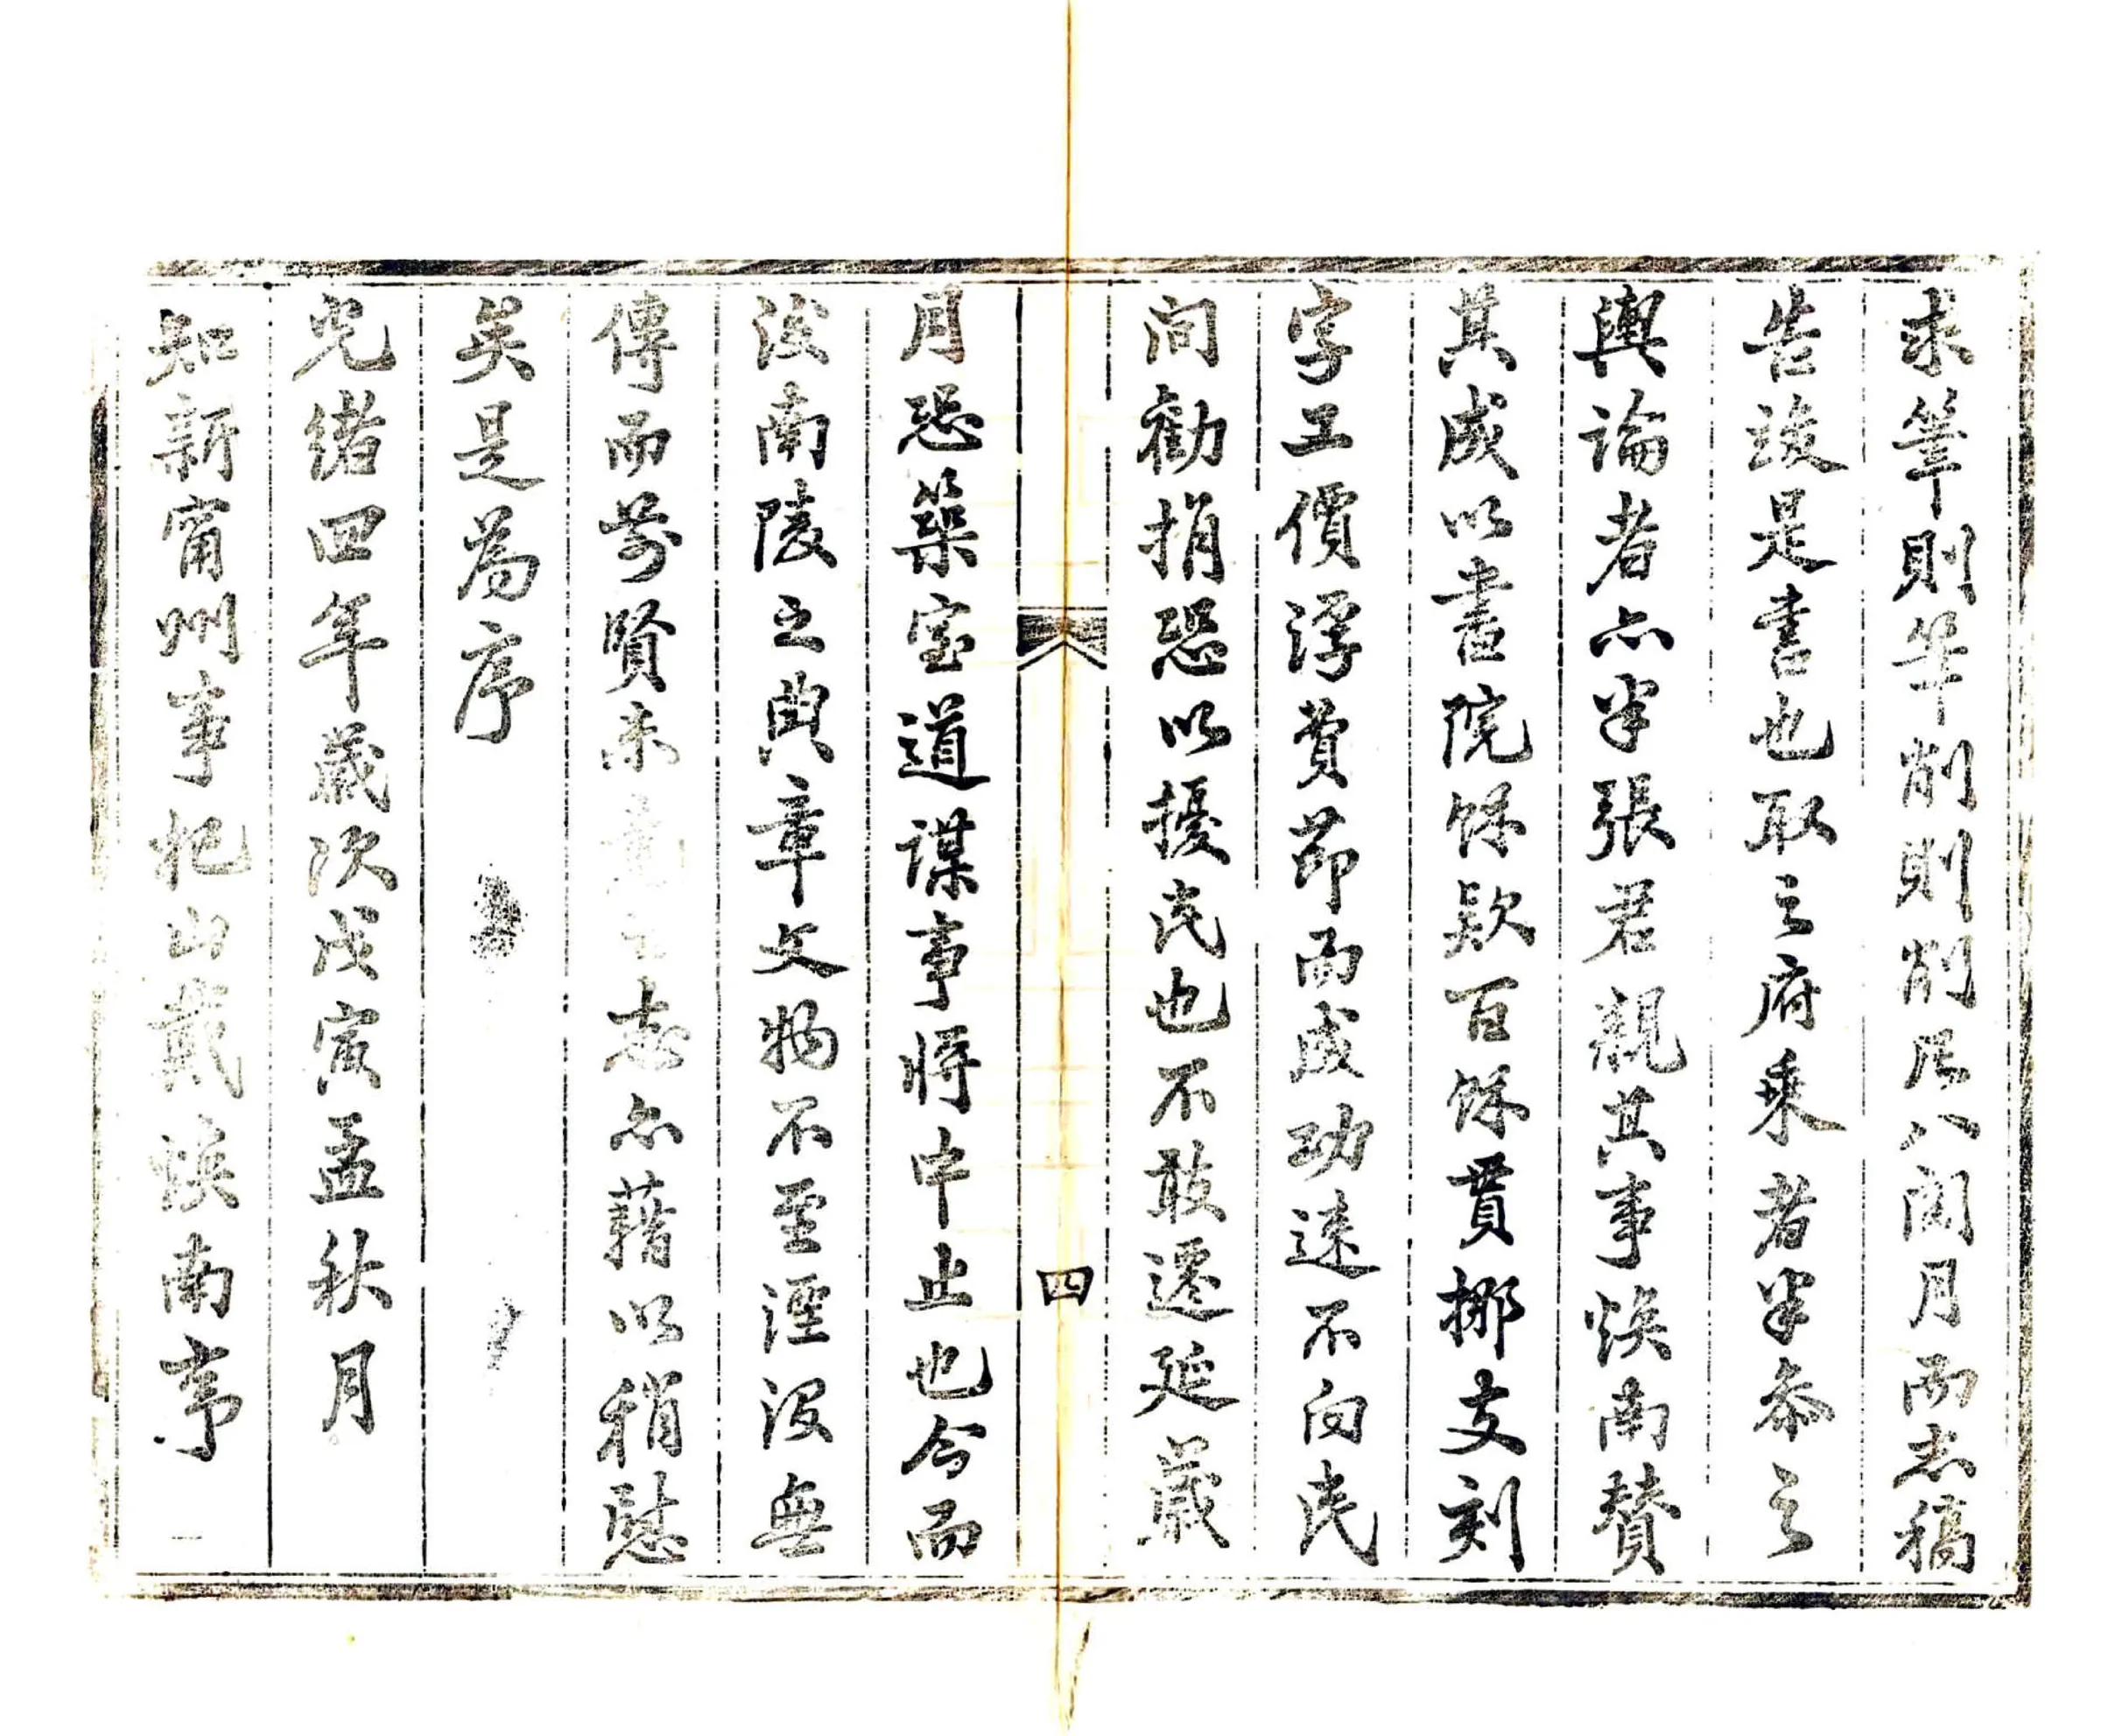 求筆則筆削則削居八閱月而志稿
告竣是書也取之府乘者半參之
輿論者亦半張君親其事煥南贊
其成以書院餘款百餘貫挪支刻
字工價浮費節而成功速不向民
間勸捐恐以擾民也不敢遷延歲
四
月恐築室道謀事將中止也今而
後南陵之典章文物不至湮沒無
傳而前賢未
志亦藉以稍慰
矣是為序
光緒四年歲次戊寅孟秋月
知新甯州事杞山戴煥南序